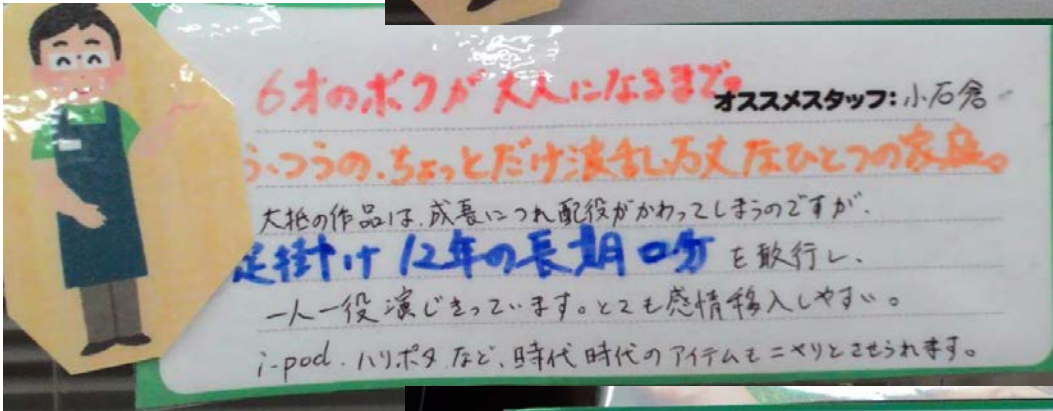 6才のボクが大人になるまで。
オススメスタッフ:小石倉
ふつうの、ちょっとだけ波乱万丈なひとつの家庭。
大抵の作品は、成長につれ配役がかわってしまうのですが、
足掛け12年の長期ロケを敢行し、
一人一役演じきっています。とても感情移入しやすい。
i-pod、ハリポタなど、時代時代のアイテムもニヤリとさせられます。